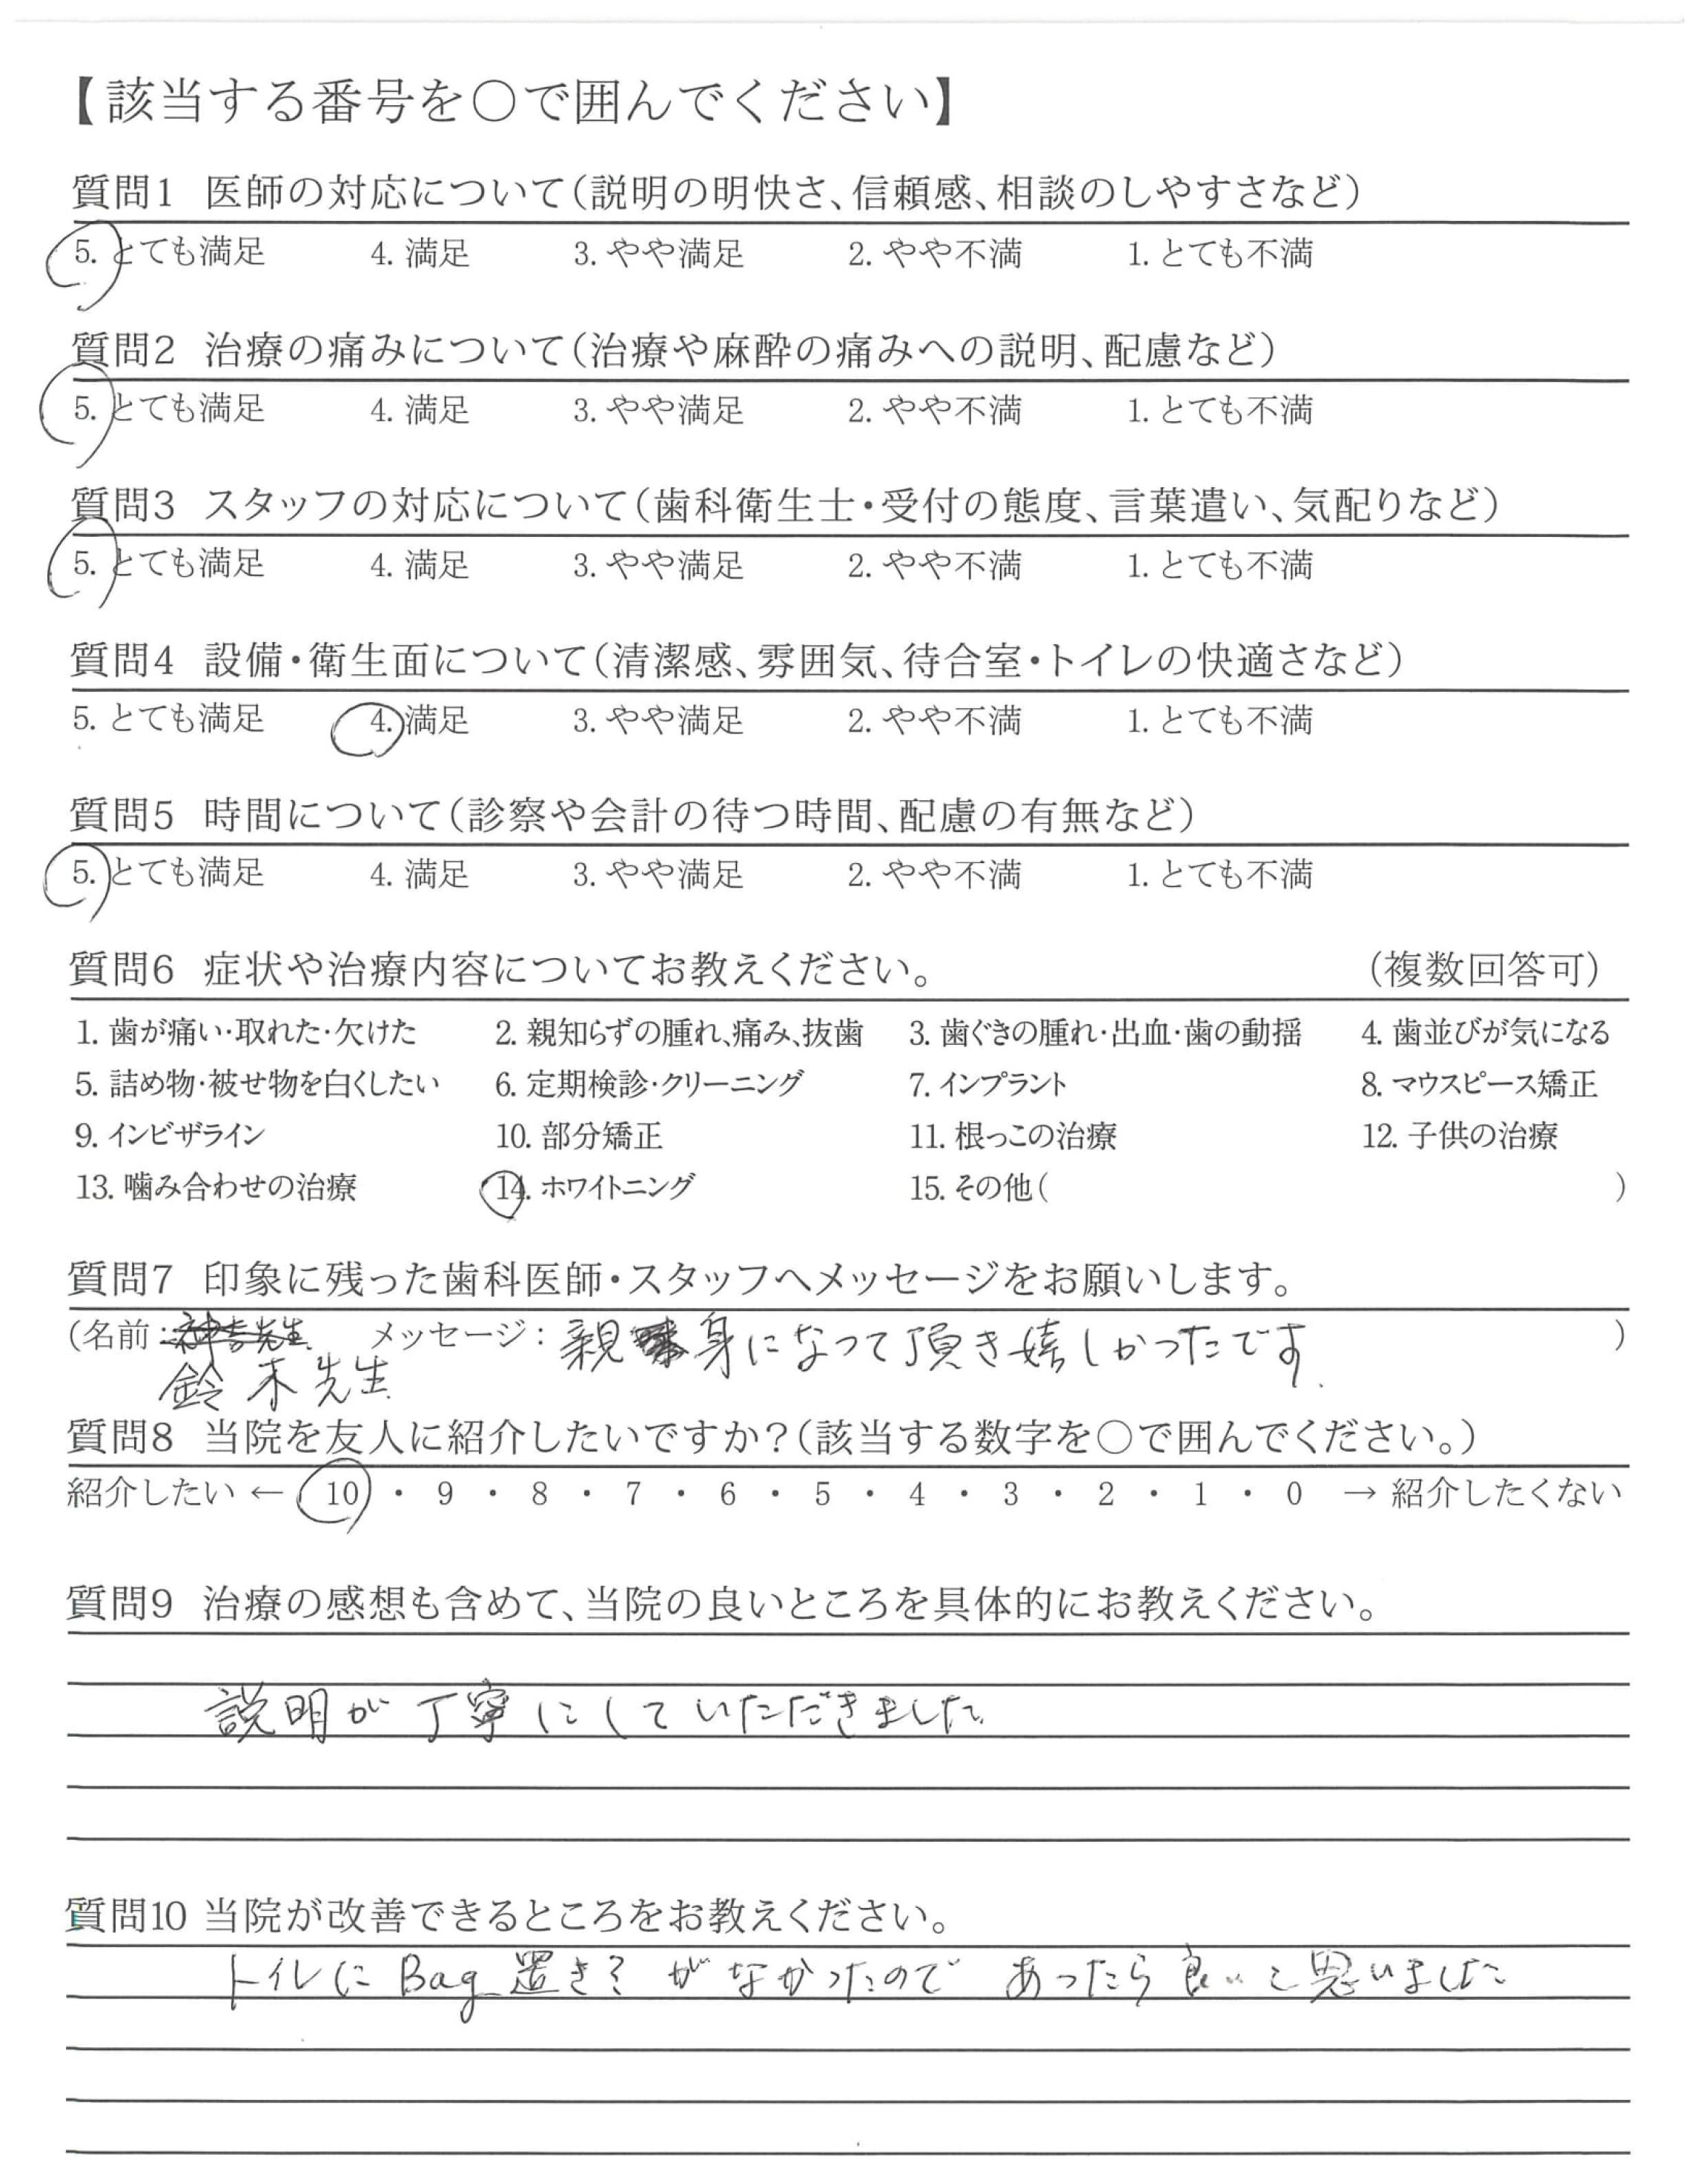 【該当する番号を○で囲んでください】
質問1 医師の対応について(説明の明快さ、信頼感、相談のしやすさなど)
5. とても満足 4. 満足 3. やや満足 2. やや不満 1. とても不満
質問2 治療の痛みについて(治療や麻酔の痛みへの説明、配慮など)
5. とても満足 4. 満足 3. やや満足 2. やや不満 1. とても不満
質問3 スタッフの対応について(歯科衛生士・受付の態度、言葉遣い、気配りなど)
5. とても満足 4. 満足 3. やや満足 2. やや不満 1. とても不満
質問4 設備・衛生面について(清潔感、雰囲気、待合室・トイレの快適さなど)
5. とても満足 4. 満足 3. やや満足 2. やや不満 1. とても不満
質問5 時間について(診察や会計の待つ時間、配慮の有無など)
5. とても満足 4. 満足 3. やや満足 2. やや不満 1. とても不満
質問6 症状や治療内容についてお教えください。 (複数回答可)
1. 歯が痛い・取れた・欠けた 2. 親知らずの腫れ、痛み、抜歯 3. 歯ぐきの腫れ・出血・歯の動揺 4. 歯並びが気になる
5. 詰め物・被せ物を白くしたい 6. 定期検診・クリーニング 7. インプラント 8. マウスピース矯正
9. インビザライン 10. 部分矯正 11. 根っこの治療 12. 子供の治療
13. 噛み合わせの治療 14. ホワイトニング 15. その他( )
質問7 印象に残った歯科医師・スタッフへメッセージをお願いします。
(名前: メッセージ: 親身になって頂き嬉しかったです )
鈴木先生
質問8 当院を友人に紹介したいですか?(該当する数字を○で囲んでください。)
紹介したい ← 10 ・ 9 ・ 8 ・ 7 ・ 6 ・ 5 ・ 4 ・ 3 ・ 2 ・ 1 ・ 0 → 紹介したくない
質問9 治療の感想も含めて、当院の良いところを具体的にお教えください。
説明が丁寧にしていただきました
質問10 当院が改善できるところをお教えください。
トイレに Bag 置き がなかったので あったら良いと思いました